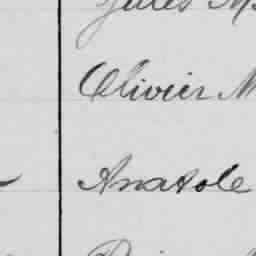 Jules M
Olivier M
Anatole